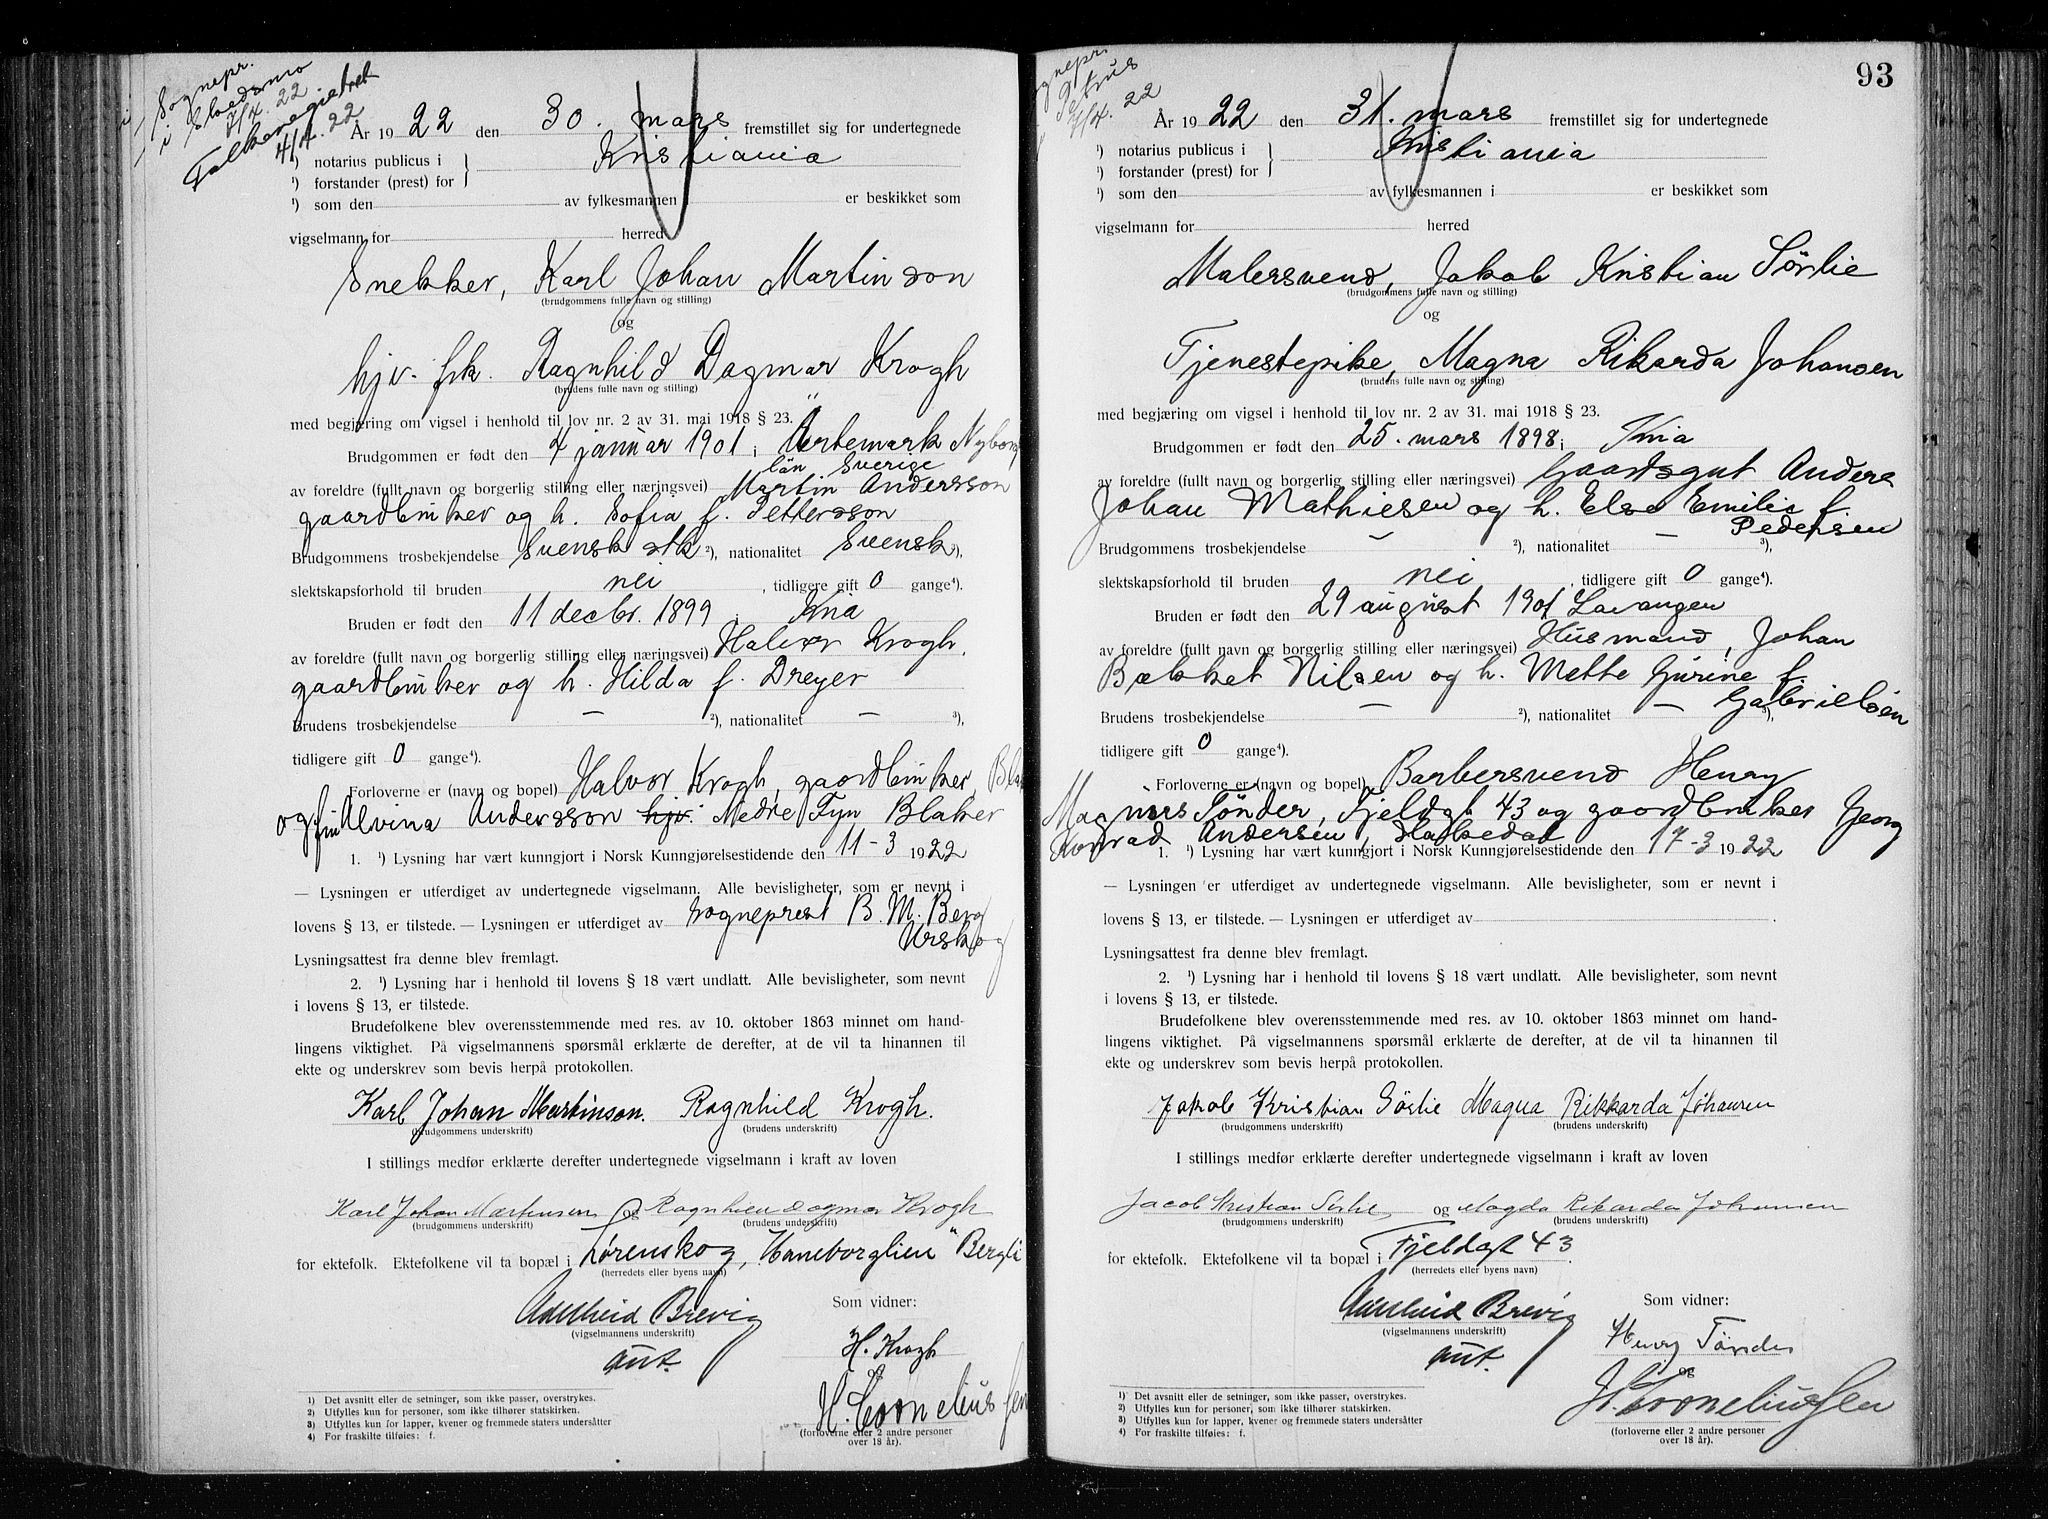 Sognepr.
i Skedsmo
7/4. 22
Folkeregistret
4/4. 22
År 1922 den 30. mars fremstillet sig for undertegnede
¹) notarius publicus i } Kristiania
¹) forstander (prest) for
¹) som den av fylkesmannen i er beskikket som
vigselmann for herred
Snekker, Karl Johan Martinson
(brudgommens fulle navn og stilling)
og
hjv. frk. Ragnhild Dagmar Krogh
(brudens fulle navn og stilling)
med begjæring om vigsel i henhold til lov nr. 2 av 31. mai 1918 § 23.
Brudgommen er født den 7 januar 1901 i Ärtemark
län Sverige
av foreldre (fullt navn og borgerlig stilling eller næringsvei) Martin Andersson
gaardbruker og h. Sofia f. Pettersson
Brudgommens trosbekjendelse Svensk stk ²), nationalitet Svensk ³),
slektskapsforhold til bruden nei , tidligere gift 0 gange⁴).
Bruden er født den 11 decbr. 1899 i Kria
av foreldre (fullt navn og borgerlig stilling eller næringsvei) Halvor Krogh,
gaardbruker og h. Hilda f. Dreyer
Brudens trosbekjendelse — ²), nationalitet — ³),
tidligere gift 0 gange⁴).
Forloverne er (navn og bopel) Halvor Krogh, gaardbruker,
og fru Alvina Andersson hjv. Nedre Fyn Blaker
1. ¹) Lysning har vært kunngjort i Norsk Kunngjørelsestidende den 11-3 1922
— Lysningen er utferdiget av undertegnede vigselmann. Alle bevisligheter, som er nevnt i
lovens § 13, er tilstede. — Lysningen er utferdiget av sogneprest B. M. Berg
Urskog
Lysningsattest fra denne blev fremlagt.
2. ¹) Lysning har i henhold til lovens § 18 vært undlatt. Alle bevisligheter, som nevnt
i lovens § 13, er tilstede.
Brudefolkene blev overensstemmende med res. av 10. oktober 1863 minnet om hand-
lingens viktighet. På vigselmannens spørsmål erklærte de derefter, at de vil ta hinannen til
ekte og underskrev som bevis herpå protokollen.
Karl Johan Martinson. Ragnhild Krogh.
(brudgommens underskrift) (brudens underskrift)
I stillings medfør erklærte derefter undertegnede vigselmann i kraft av loven
Karl Johan Martinsen og Ragnhild Dagmar Krogh
(brudgommens underskrift) (brudens underskrift)
for ektefolk. Ektefolkene vil ta bopæl i Lørenskog, Haneborglien "Bergli
(herredets eller byens navn)
Adelheid Brevig
(vigselmannens underskrift)
aut.
Som vidner:
H. Krogh
og
H. Corneliussen
(forloverne eller 2 andre personer
over 18 år).
1) Det avsnitt eller de setninger, som ikke passer, overstrykes.
2) Utfylles kun for personer, som ikke tilhører statskirken.
3) Utfylles kun for lapper, kvener og fremmede staters undersåtter
4) For fraskilte tilføies: f.
93
Sognepr.
Petrus
7/4. 22
År 1922 den 31. mars fremstillet sig for undertegnede
¹) notarius publicus i } Kristiania
¹) forstander (prest) for
¹) som den av fylkesmannen i er beskikket som
vigselmann for herred
Malersvend, Jakob Kristian Sørlie
(brudgommens fulle navn og stilling)
og
Tjenestepike, Magna Rikarda Johansen
(brudens fulle navn og stilling)
med begjæring om vigsel i henhold til lov nr. 2 av 31. mai 1918 § 23.
Brudgommen er født den 25. mars 1898 i Kria
av foreldre (fullt navn og borgerlig stilling eller næringsvei) Gaardsgut Anders
Johan Mathiesen og h. Else Emilie f.
Pedersen
Brudgommens trosbekjendelse — ²), nationalitet — ³),
slektskapsforhold til bruden nei , tidligere gift 0 gange⁴).
Bruden er født den 29 august 1901 Lavangen
av foreldre (fullt navn og borgerlig stilling eller næringsvei) Husmand, Johan
Bækket Nilsen og h. Mette Gurine f.
Gabrielsen
Brudens trosbekjendelse — ²), nationalitet — ³),
tidligere gift 0 gange⁴).
Forloverne er (navn og bopel) Barbersvend Henry
Magnus Tønder, Fjeldgt. 43 og gaardbruker Georg
Konrad Andersen,
1. ¹) Lysning har vært kunngjort i Norsk Kunngjørelsestidende den 17-3 1922
— Lysningen er utferdiget av undertegnede vigselmann. Alle bevisligheter, som er nevnt i
lovens § 13, er tilstede. — Lysningen er utferdiget av .
Lysningsattest fra denne blev fremlagt.
2. ¹) Lysning har i henhold til lovens § 18 vært undlatt. Alle bevisligheter, som nevnt
i lovens § 13, er tilstede.
Brudefolkene blev overensstemmende med res. av 10. oktober 1863 minnet om hand-
lingens viktighet. På vigselmannens spørsmål erklærte de derefter, at de vil ta hinannen til
ekte og underskrev som bevis herpå protokollen.
Jakob Kristian Sørlie Magna Rikkarda Johansen
(brudgommens underskrift) (brudens underskrift)
I stillings medfør erklærte derefter undertegnede vigselmann i kraft av loven
Jacob Kristian Sørlie, og Magda Rikarda Johansen
(brudgommens underskrift) (brudens underskrift)
for ektefolk. Ektefolkene vil ta bopæl i Fjeldgt 43.
(herredets eller byens navn)
Adelheid Brevig
(vigselmannens underskrift)
aut.
Som vidner:
Henry Tønder
og
H. Corneliussen
(forloverne eller 2 andre personer
over 18 år).
1) Det avsnitt eller de setninger, som ikke passer, overstrykes.
2) Utfylles kun for personer, som ikke tilhører statskirken.
3) Utfylles kun for lapper, kvener og fremmede staters undersåtter
4) For fraskilte tilføies: f.